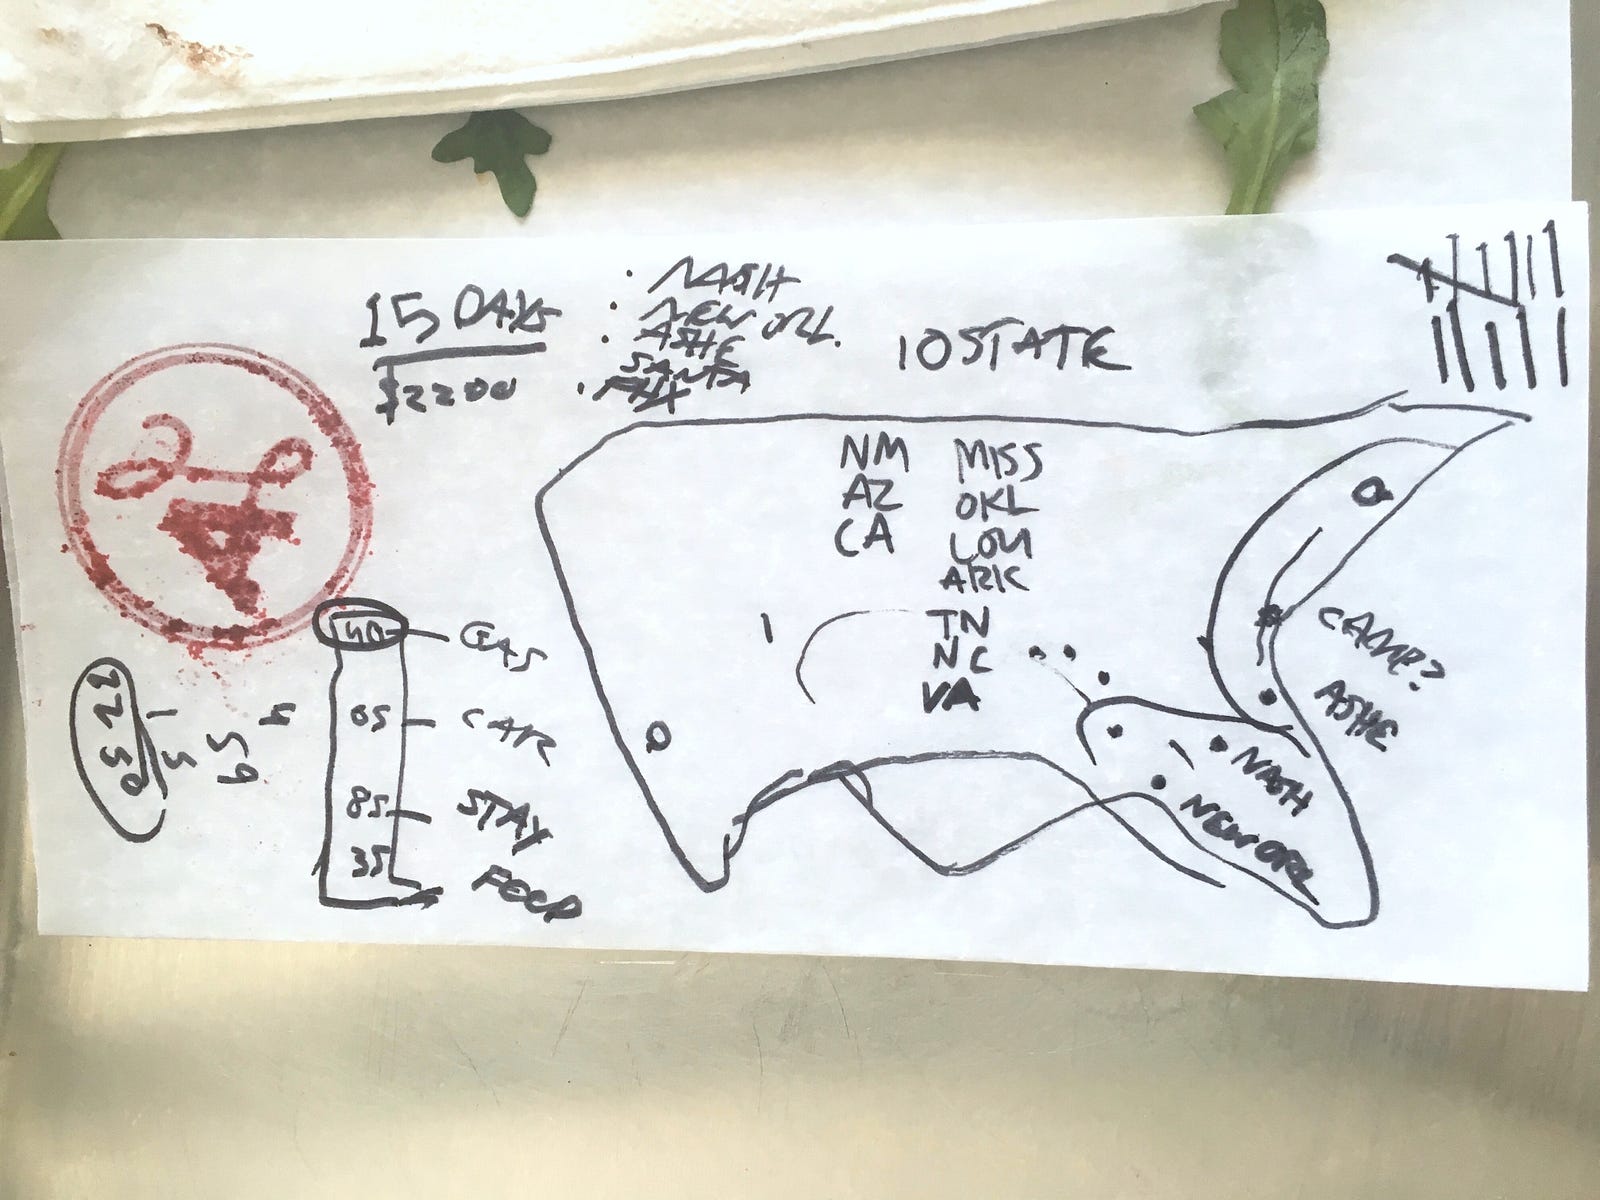 15 DAYS
$2200
NASH
NEW ORL.
ASHE
SANTA
10 STATE
NM
AZ
CA
MISS
OKL
LOU
ARK
TN
NC
VA
40 GAS
05 CAR
85 STAY
35 FOOD
CAMP?
ASHE
NASH
NEW ORL